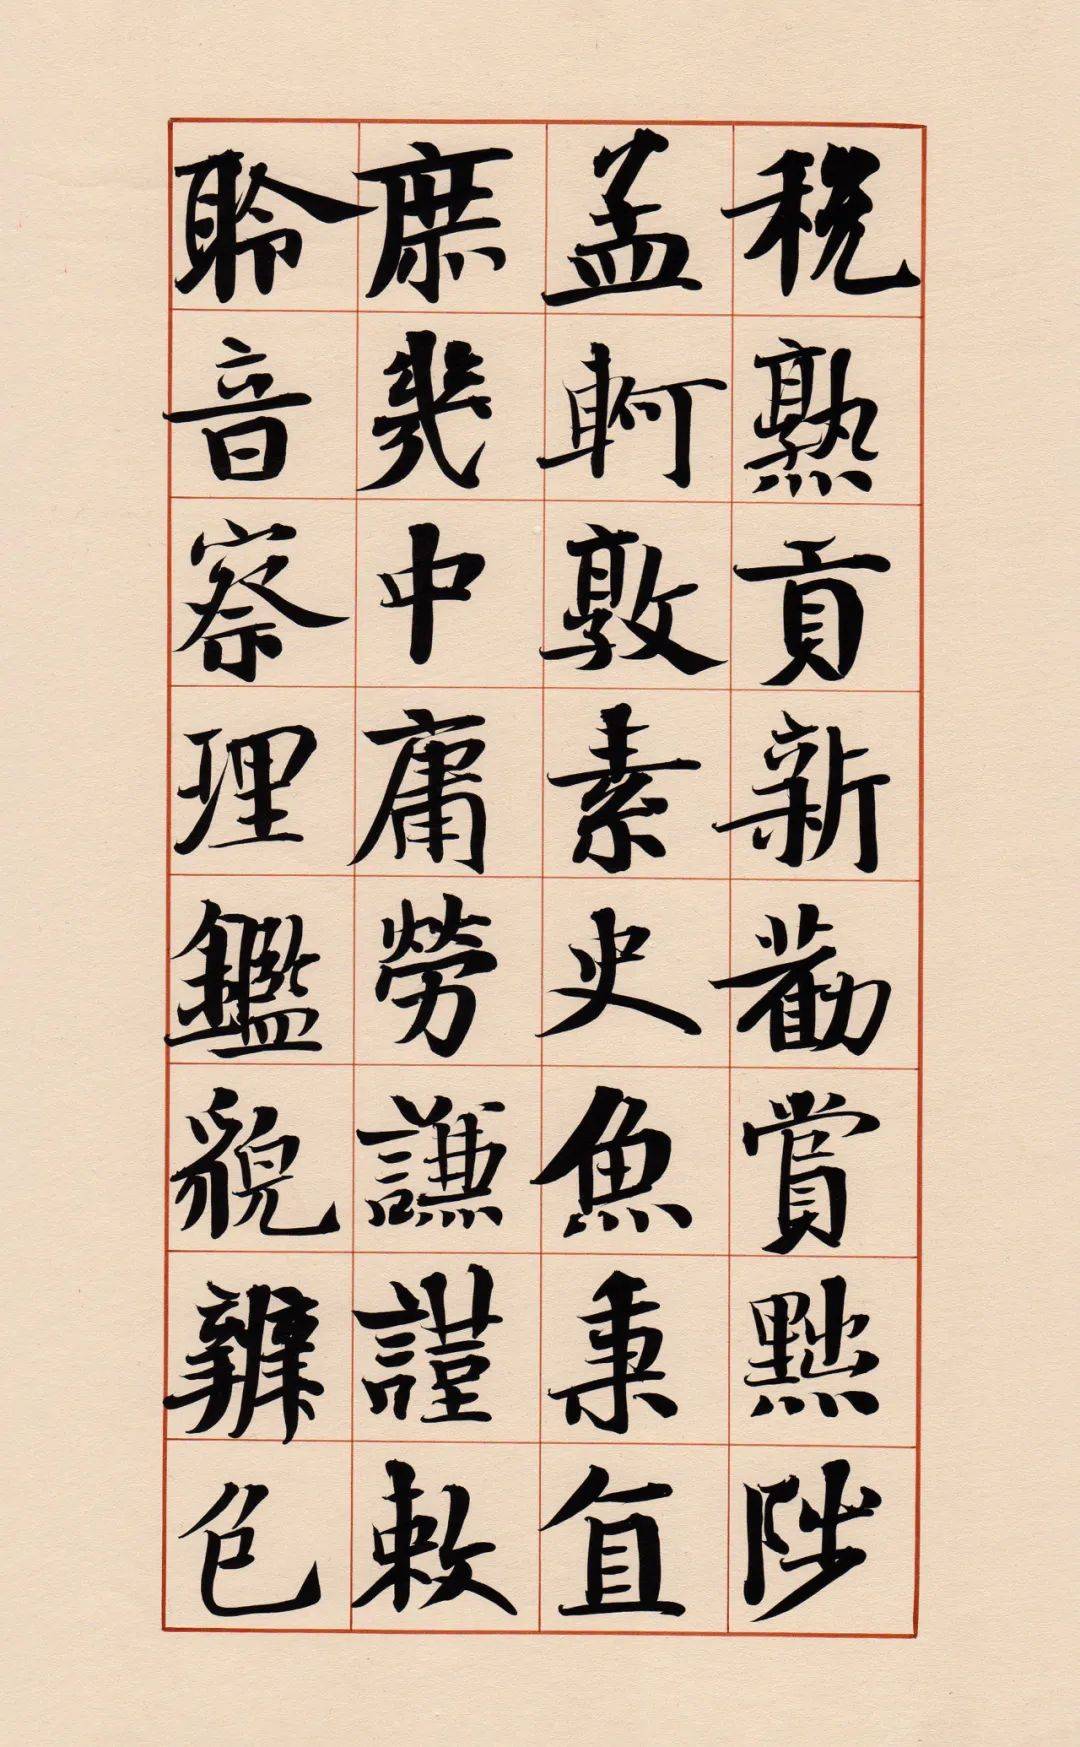 稅熟貢新勸賞黜陟
孟軻敦素史魚秉直
庶幾中庸勞謙謹敕
聆音察理鑑貌辨色